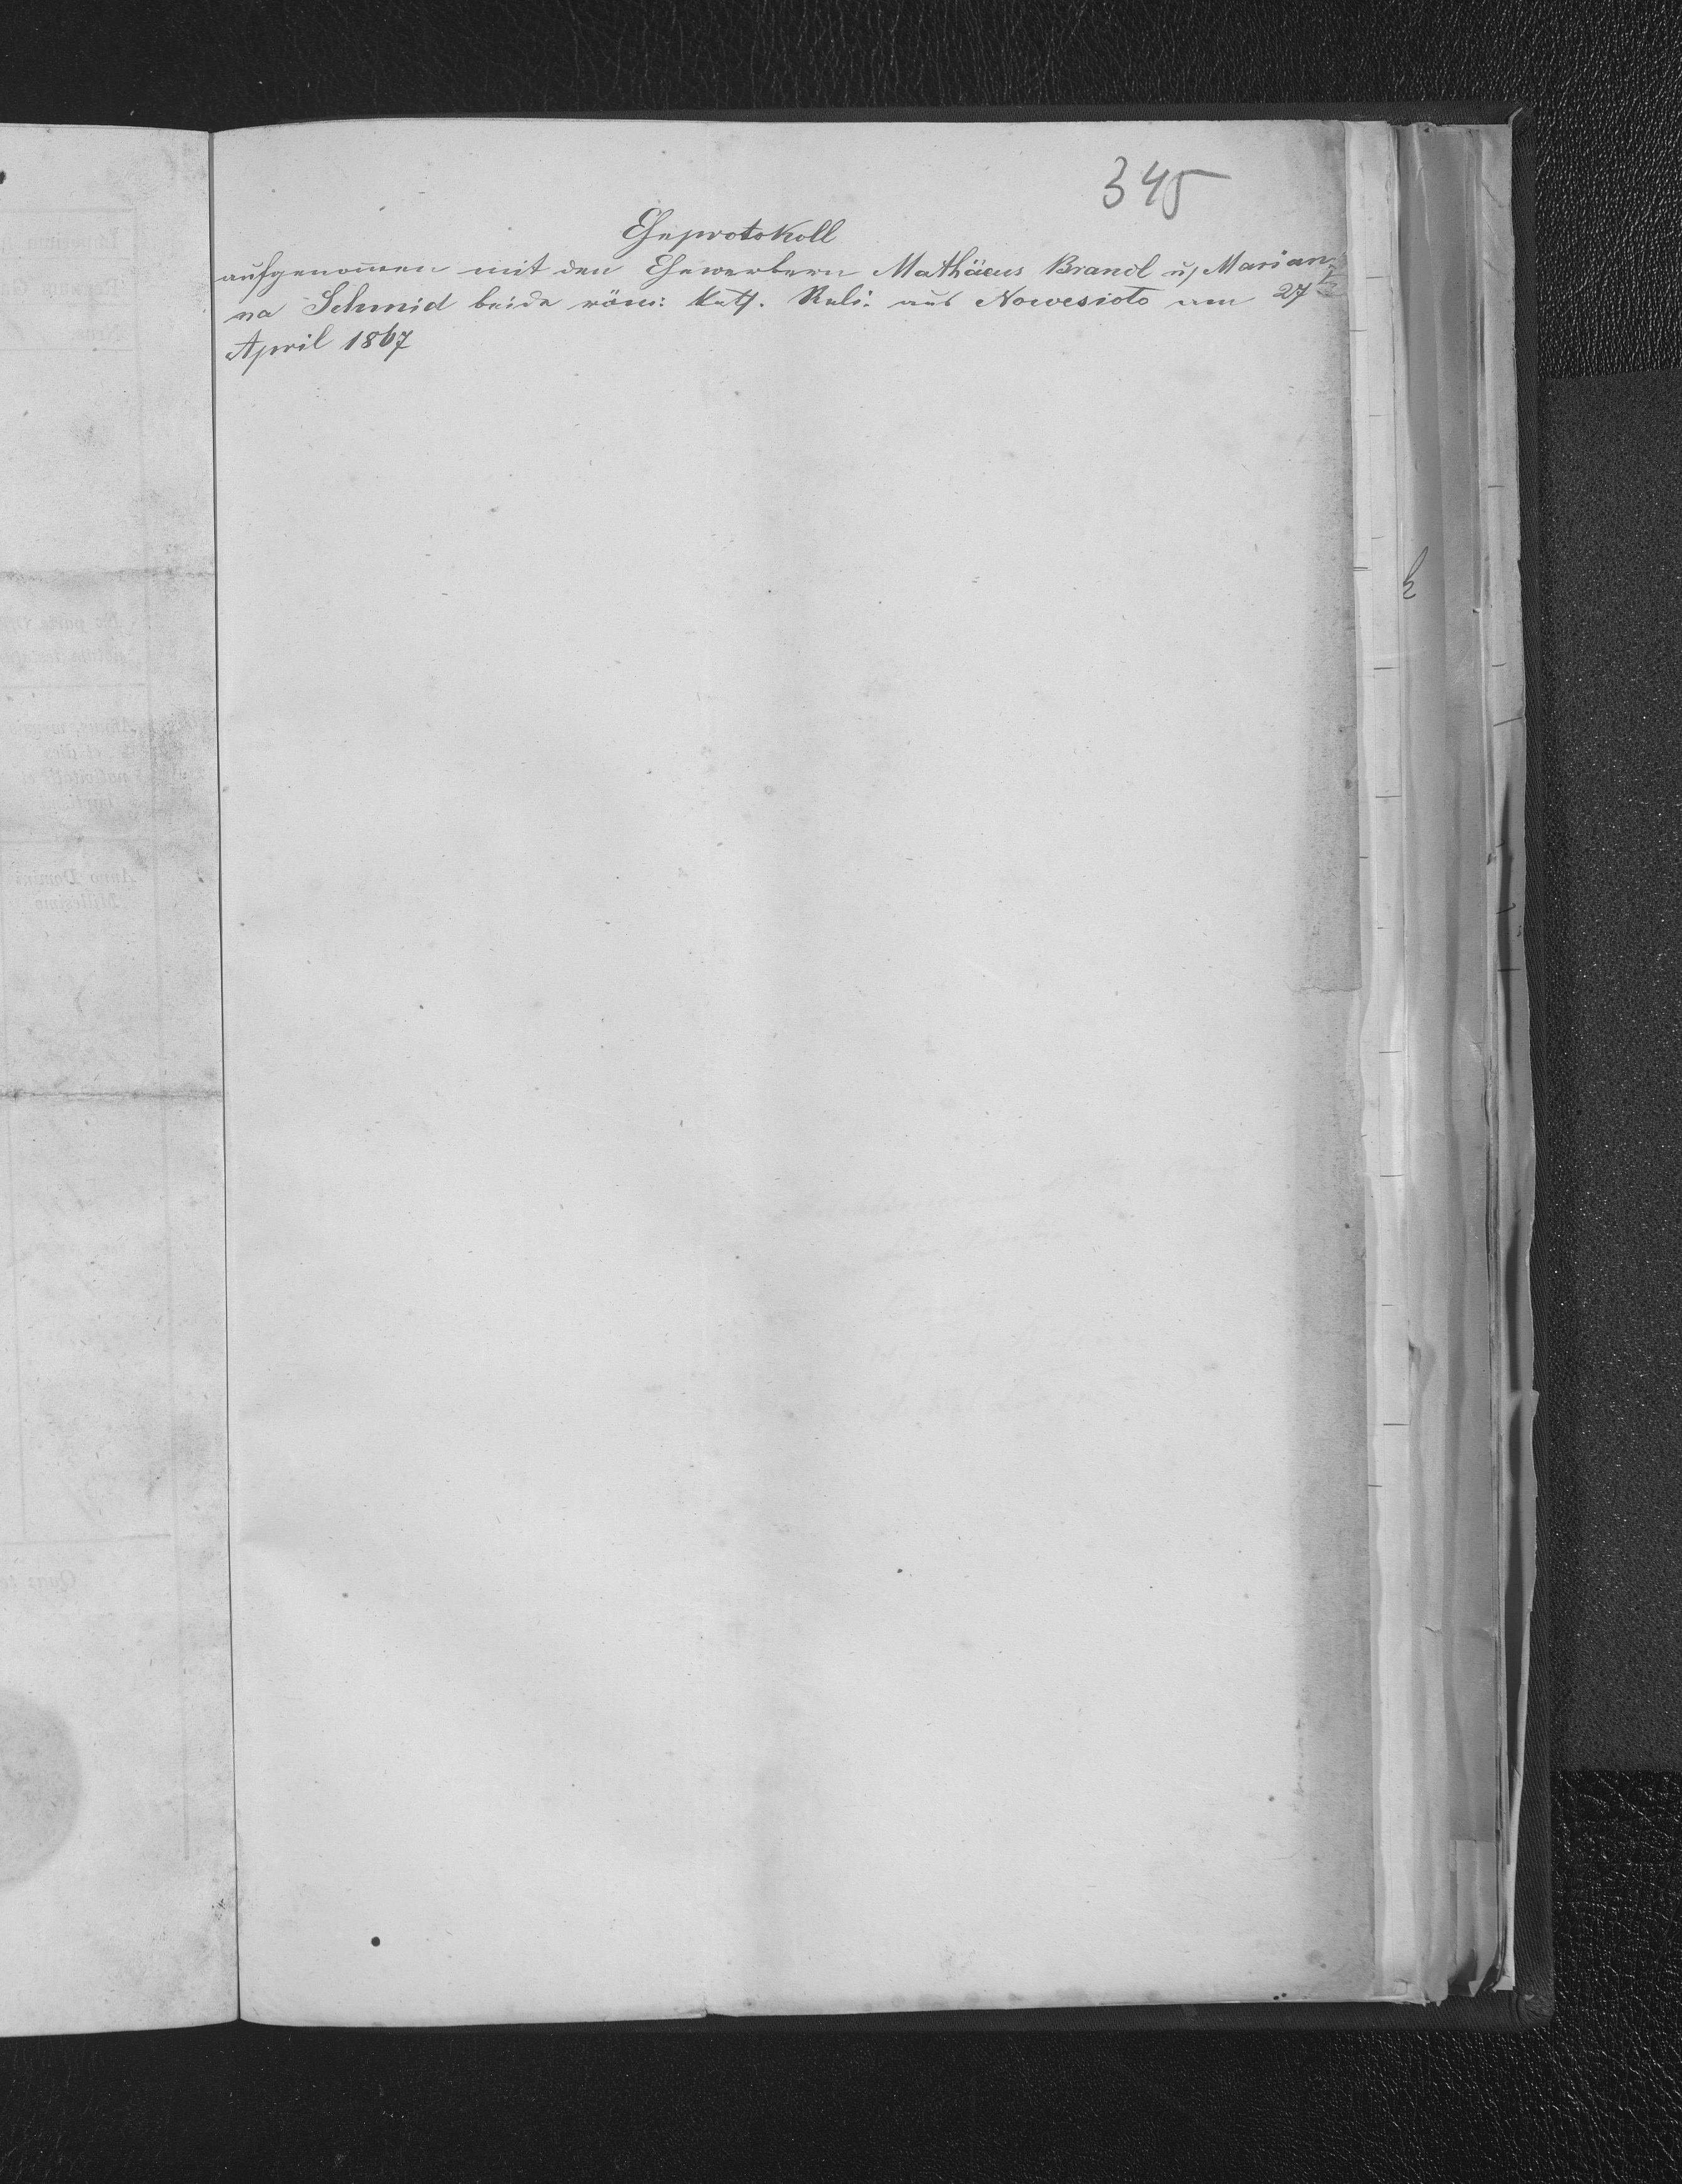 345
Eheprotokoll
aufgenommen mit den Ehewerbern Mathäeus Brandl u, Marian-
na Schmid beide röm: kath. Reli: aus Nowesioto am 27t
April 1867